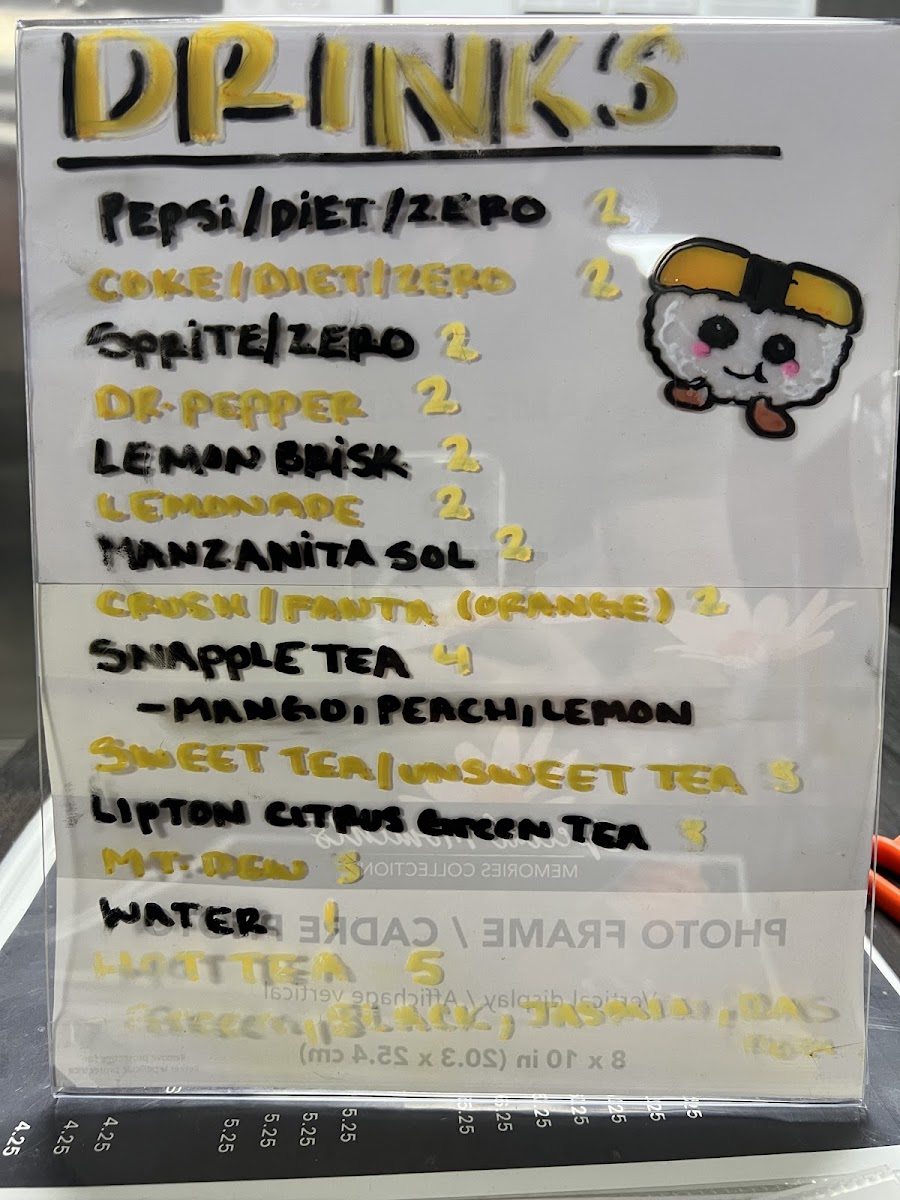 DRINKS
PEPSi/DiET/ZERO 2
COKE/DIET/ZERO 2
SPRiTE/ZERO 2
DR.PEPPER 2
LEMON BRiSK 2
LEMONADE 2
MANZANiTA SOL 2
CRUSH/FANTA (ORANGE) 2
SNAPPLE TEA 4
-MANGO, PEACH, LEMON
SWEET TEA/UNSWEET TEA 3
LIPTON CITRUS GREEN TEA 3
MT. DEW 3
WATER 1
MEMORIES COLLECTION
PHOTO FRAME / CADRE
HOT TEA 5
Vertical display / Affichage vertical
GREEN, BLACK, JASMIN,
8 x 10 in (20.3 x 25.4 cm)
4.25 4.25 4.25 5.25 5.25 5.25 5.25 5.25 5.25 5.25